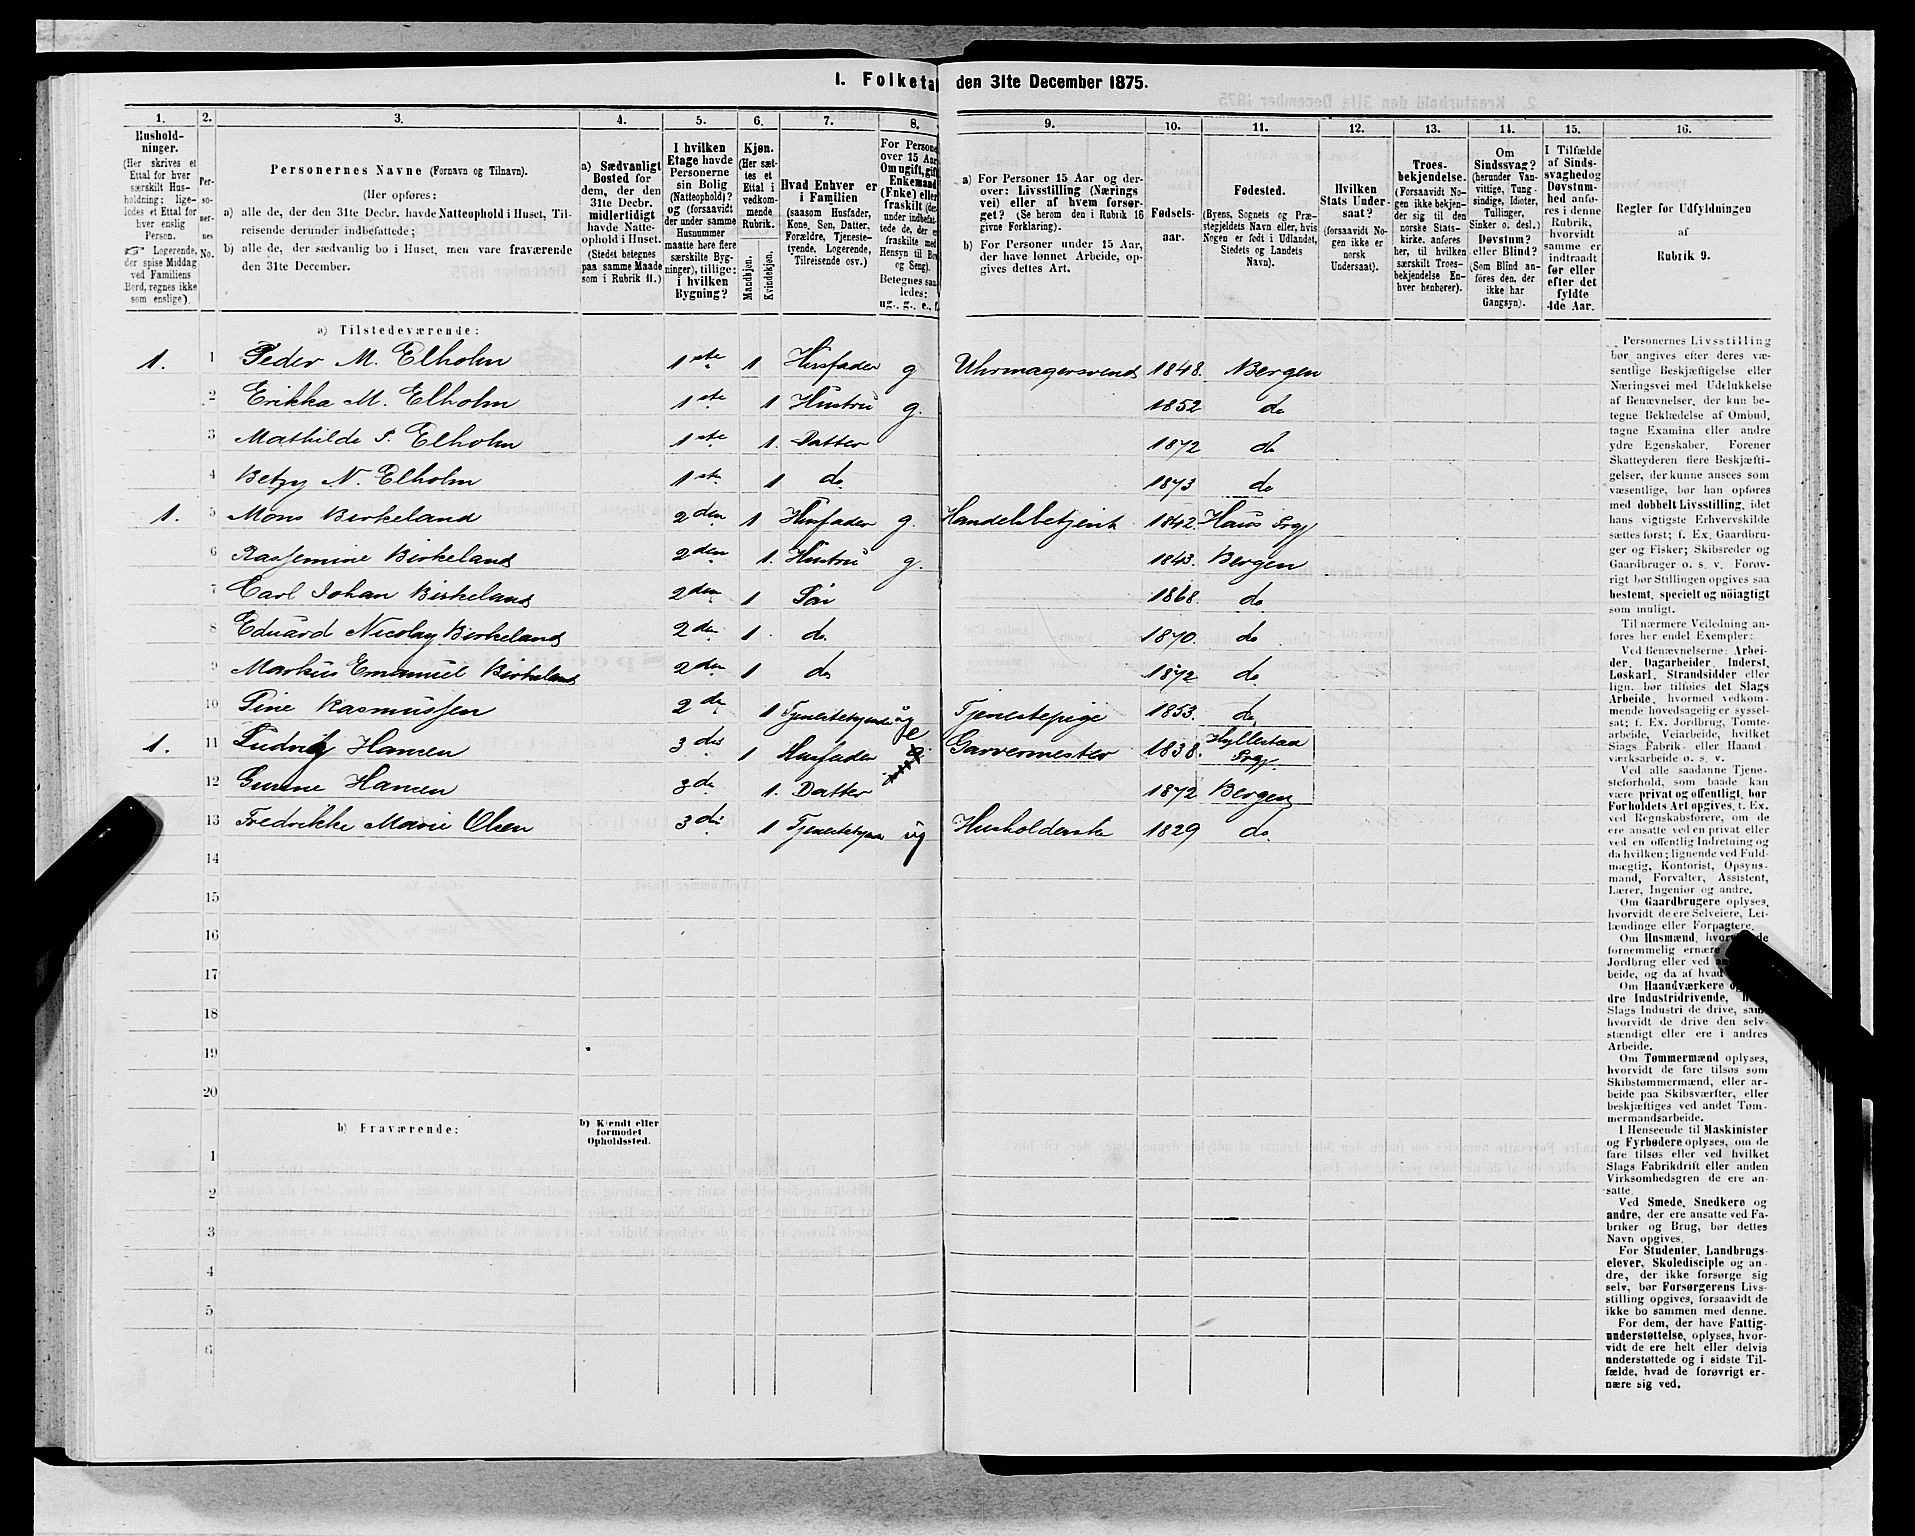 I. Folketæ den 31te December 1875.
1. 2. 3. 4. 5. 6. 7. 8. 9. 10. 11. 12. 13. 14. 15. 16.
Hushold-
ninger.
(Her skrives et
Ettal for hver
særskilt Hus-
holdning; lige-
ledes et Ettal for
hver enslig
Person.
☞ Logerende,
der spise Middag
ved Familiens
Bord, regnes ikke
som enslige).
Per-
so-
ner-
nes
No.
Personernes Navne (Fornavn og Tilnavn).
(Her opføres:
a) alle de, der den 31te Decbr. havde Natteophold i Huset, Til-
reisende derunder indbefattede;
b) alle de, der sædvanlig bo i Huset, men vare fraværende
den 31te December.
a) Sædvanligt
Bosted for
dem, der den
31te Decbr.
midlertidigt
havde Natte-
ophold i Huset.
(Stedet betegnes
paa samme Maade
som i Rubrik 11.)
I hvilken
Etage havde
Personerne
sin Bolig
(Natteophold)?
og (forsaavidt
der under samme
Husnummer
maatte høre flere
særskilte Byg-
ninger), tillige:
i hvilken
Bygning?
Kjøn.
(Her sæt-
tes et
Ettal i
vedkom-
mende
Rubrik.
Mandkjøn.
Kvindekjøn.
Hvad Enhver er
i Familien
(saasom Husfader,
Kone, Søn, Datter,
Forældre, Tjeneste-
tyende, Logerende,
Tilreisende osv.)
For Persone
over 15 Aar
Om ugift, gift
Enkemand
(Fnke) eller
fraskilt (der
under indbefat
tede de, der er
fraskilte med
Hensyn til Bo
og Seng).
Betegnes saa
ledes:
ug., g., e., f.
a) For Personer 15 Aar og der-
over: Livsstilling (Nærings
vei) eller af hvem forsør-
get? (Se herom den i Rubrik 16
givne Forklaring).
b) For Personer under 15 Aar,
der have lønnet Arbeide, op-
gives dettes Art.
Fødsels-
aar.
Fødested.
(Byens, Sognets og Præ-
stegjeldets Navn eller, hvis
Nogen er født i Udlandet,
Stedets og Landets
Navn).
Hvilken
Stats Under-
saat?
(forsaavidt No-
gen ikke er
norsk
Undersaat).
Troes-
bekjendelse.
(Forsaavidt No-
gen ikke bekjen-
der sig til den
norske Stats-
kirke, anføres
her, til hvilken
særskilt Troes-
bekjendelse En-
hver henhører).
Om
Sindssvag?
(herunder Van-
vittige, Tung-
sindige, Idioter,
Tullinger,
Sinker o. desl.)
Døvstum?
eller Blind?
(Som Blind an-
føres den, der
ikke har
Gangsyn).
I Tilfælde
af Sinds-
svaghed og
Døvstum-
hed anfø-
res i denne
Rubrik,
hvorvidt
samme er
indtraadt
før eller
efter det
fyldte
4de Aar.
Regler for Udfyldningen
af
Rubrik 9.
a) Tilstedeværende:
1. 1 Peder M. Elholm 1ste 1 Husfader g Uhrmagersvend 1848. Bergen
2 Erikka M. Elholm 1ste. 1 Hustru g. 1852 do
3 Mathilde P. Elholm 1ste 1. Datter 1872 do
4 Betzy N. Elholm 1ste 1 do. 1873 do
1. 5 Mons Birkeland 2den 1 Husfader g. Handelsbetjent 1842. Haus Prgj
6 Rassemine Birkeland 2den 1. Hustru g. 1843. Bergen
7 Carl Johan Birkeland 2den 1 Søn 1868. do
8 Eduard Nicolay Birkeland 2den 1. do. 1870. do
9 Markus Emanuel Birkeland 2den 1 do 1872 do
10 Tine Rasmussen 2de 1 Tjenestetyende ug Tjenestepige 1853. do
1. 11 Ludvig Hansen 3die 1 Husfader e Garvermester 1838. Hyllestad Prgj.
12 Gunne Hansen 3de 1. Datter 1872 Bergen
13 Fredrikke Marie Olsen 3di 1 Tjenestetyen ug Husholderske 1829 do.
14
15
16
17
18
19
20
b) Fraværende:
b) Kjendt eller
formodet
Opholdssted.
1
2
3
4
5
6
Personernes Livsstilling
bør angives efter deres væ-
sentlige Beskjæftigelse eller
Næringsvei med Udelukkelse
af Benævnelser, der kun be-
tegne Beklædelse af Ombud,
tagne Examina eller andre
ydre Egenskaber. Forener
Skatteyderen flere Beskjæfti-
gelser, der kunne ansees som
væsentlige, bør han opføres
med dobbelt Livsstilling, idet
hans vigtigste Erhvervskilde
sættes først; f. Ex. Gaardbru-
ger og Fisker; Skibsreder og
Gaardbruger o. s. v. Forøv-
rigt bør Stillingen opgives saa
bestemt, specielt og nöiagtigt
som muligt.
Til nærmere Veiledning an-
føres her endel Exempler:
Ved Benævnelserne: Arbei-
der, Dagarbeider, Inderst,
Løskarl, Strandsidder eller
lign. bør tilføies det Slags
Arbeide, hvormed vedkom-
mende hovedsagelig er syssel-
sat; f. Ex. Jordbrug, Tomte-
arbeide, Veiarbeide, hvilket
Slags Fabrik- eller Haand-
værksarbeide o. s. v.
Ved alle saadanne Tjene-
steforhold, som baade kan
være privat og offentligt, bør
Forholdets Art opgives, t. Ex.
ved Regnskabsførere, om de
ere ansatte ved en privat eller
ved en offentlig Indretning og
da hvilken; lignende ved Fuld-
mægtig, Kontorist, Opsyns-
mand, Forvalter, Assistent,
Lærer, Ingeniør og andre.
Om Gaardbrugere oplyses,
hvorvidt de ere Selveiere, Lei-
lændinge eller Forpagtere.
Om Husmænd, hvorvidt de
fornemmelig ernære
Jordbrug eller ved
beide, og da af hvad
Om Haandværkere og
dre Industridrivende,
Slags Industri de drive, samt
hvorvidt de drive den selv-
stændigt eller ere i andres
Arbeide.
Om Tømmermænd oplyses,
hvorvidt de fare tilsøs som
Skibstømmermænd, eller ar-
beide paa Skibsværfter, eller
beskjæftiges ved andet Tøm-
mermandsarbeide.
I Henseende til Maskinister
og Fyrbødere oplyses, om de
fare tilsøs eller ved hvilket
Slags Fabrikdrift eller anden
Virksomhedsgren de ere an-
satte.
Ved Smede, Snedkere og
andre, der ere ansatte ved Fa-
briker og Brug, bør dettes
Navn opgives.
For Studenter, Landbrugs-
elever, Skoledisciple og an-
dre, der ikke forsørge sig
selv, bør Forsørgerens Livs-
stilling opgives, forsaavidt de
ikke bo sammen med denne.
For dem, der have Fattig-
understøttelse, oplyses, hvor-
vidt de ere helt eller delvis
understøttede og i sidste Til-
fælde, hvad de forøvrigt er-
nære sig ved.